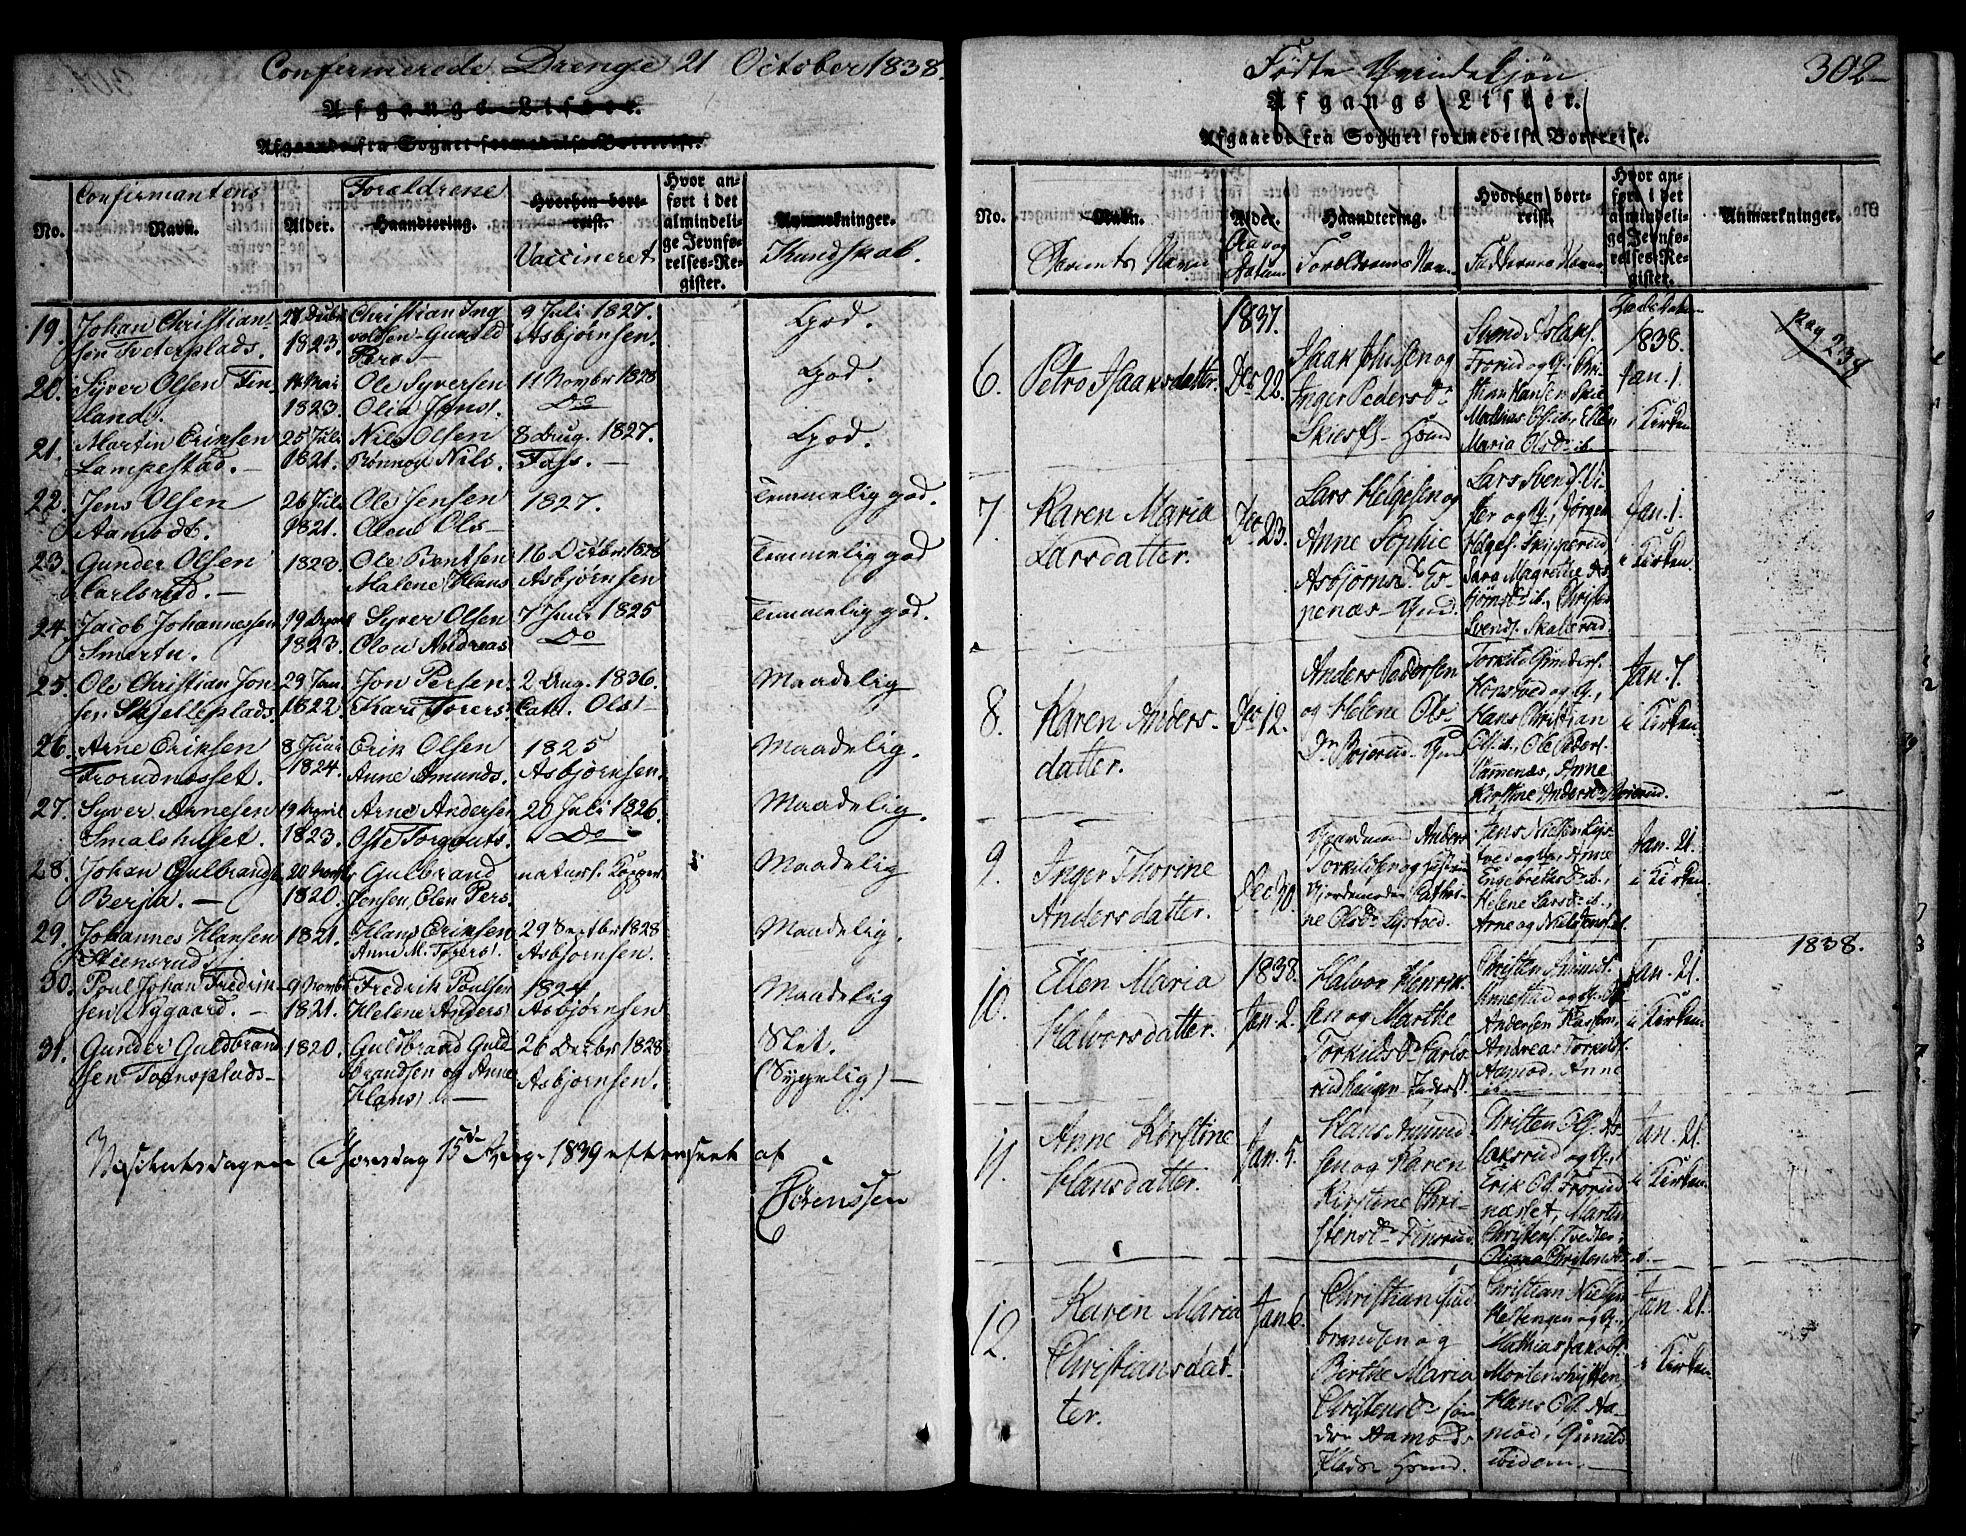 Confirmerede Drenge 21 October 1838.
Afgangs-Lister.
Afgaaede fra Sognet formedelst Bortreise.
No.
Confirmantens
Navn.
Alder.
Forældrene
Haandtering.
Hvorhen bort-
reist.
Vaccineret
Hvor an-
ført i det
almindeli-
ge Jevnfø-
relses-Re-
gister.
Anmærkninger.
Kundskab.
19.
Johan Christian-
sen Tveterplads.
1823.
Christian Ing
9 Juli 1827.
Asbjørnsen.
God.
20.
Syver Olsen Fin-
land.
14 Mai
1823.
Ole Syversen
Olia Jens.
11 Novbr 1828
Do
God.
21.
Martin Eriksen
Lampestad. -
25 Juli
1821.
Nils Olsen
Rønnog Nils.
8 Aug. 1827.
Fass. -
God.
22.
Jens Olsen
Aamodt.
26 Juli
1821.
Ole Jensen
Olava Ols-
1827.
Temmelig god.
23.
Gunder Olsen
Carlsrud. -
1823.
Ole Berntsen
Malene Hans
16 Octbr 1828
Asbjørnsen
Temmelig god
24.
Jacob Johannessen
Smertu.
19
1823.
Syver Olsen
Andreas
7 Juni 1825
Do
Temmelig god.
25.
Ole Christian Jon-
sen Skjelleplads.
29 Jan.
1822.
Jon Persen.
Kari Torers
2 Aug. 1836.
Cat. Ols. -
Maadelig
26.
Arne Eriksen
Frorudnæsset.
8 Juni
1824.
Erik Olsen
Anne Amunds.
1825
Asbjørnsen.
Maadelig.
27.
Syver Arnesen
Smalshuset.
19 April
1823.
Arne Andersen
20 Juli 1826.
Do
Maadelig.
28.
Johan Gulbrands
Berja. -
1820.
Gulbrand
Jensen, Elen Pers.
naturl. Kopper
Maadelig
29.
Johannes Hansen
Steensrud.
1821.
Hans Eriksen
Anne M. Torers.
29 Septbr 1828
Asbjørnsen.
Maadelig.
30.
Poul Johan Fredrik-
sen Nygaard. -
9 Novbr
1821.
Fredrik Poulsen
Helene Anders
1824
Asbjørnsen
Maadelig
31.
Gunder Guldbrand
sen
1820.
Guldbrand Guld
brandsen og Anne
Hans. -
26 Decbr 1828
Asbjørnsen.
Slet.
(Sygelig) -
Visitatsdagen Torsdag 15de Aug. 1839 efterseet af
Sørenssen
302
Fødte Qvindekjøn
Afgangs-Lister.
Afgaaede fra Sognet formedelst Bortreise.
No.
Navn.
Barnets Navn
Alder.
Aar og
Datum
Haandtering.
Forældrenes Navn
Hvorhen bort-
reist.
Faddernes Navne
Hvor an-
ført i det
almindeli-
ge Jevnfø-
relses-Re-
gister.
Anmærkninger.
1837.
Daabs Datum
1838.
pag 238
6.
Petro Isaaksdatter.
Dec 22.
Isaak Johnsen og
Inger Peders Dr
Svend Aslaks.
Frorud og Q., Chri-
stian Hansen Skie
Mathias Ols. ib., Ellen
Maria Olsdr ib.
Jan. 1.
i Kirken
7.
Karen Maria
Larsdatter.
Dec 23.
Lars Helgesen og
Anne Sophie
Asbjørnsdr Es-
penæs-
Lars Svends. Vi-
ker og Q., Jørgen
Helges. Skipperud
Sara Magrethe As
bjørnsdr ib., Christen
Svends. Skallerud.
Jan. 1.
i Kirken.
8.
Karen Anders-
datter.
Dec 12.
Anders Pedersen
og Helene Ols-
Dr. Beierud.
Torkild Gunders.
Hans Christian
Ols. ib., Ole Peders.
Anne
Kirstine Andersdr Beierud.
Jan. 7.
i Kirken.
9.
Inger Thorine
Andersdatter.
Dec 30.
Gaardmand Anders
Torkildsen og Hustru
Cathri-
ne Olsdr Lystved.
Jens Nielsen Lys-
tved og Q., Anne
Engebretsdr ib.,
Helene Larsdr ib.,
Arne og Niels Jens. ib.
Jan. 21.
i Kirken.
1838.
10.
Ellen Maria
Halvorsdatter.
1838.
Jan. 2.
Halvor Henrik-
sen og Marthe
Torkilds Dr Carls-
rudhaugen
Christen Amunds.
Andersen
Andreas Torkilds.
Aamod. Anne
Jan. 21.
i Kirken.
11.
Anne Kirstine
Hansdatter.
Jan. 5.
Hans Amund-
sen og Karen
Kirstine Chri-
stensdr Finsrud.
Christen Ols. As-
laksrud og Q.,
Erik Ols. Frorud
næsset, Martin
Christens. Tvedter,
Christensdr ib.
Jan. 21.
i Kirken.
12.
Karen Maria
Christiansdat-
ter.
Jan 6.
Christian Guld-
brandsen og
Birthe Maria
Christensdr Søn-
dre Aamods
Christian Nielsen
og Q.,
Mathias Jakobs.
Mortenshytten,
Hans Ols. Aa-
mod, Gunild
ibidem. -
Jan. 21.
i Kirken.